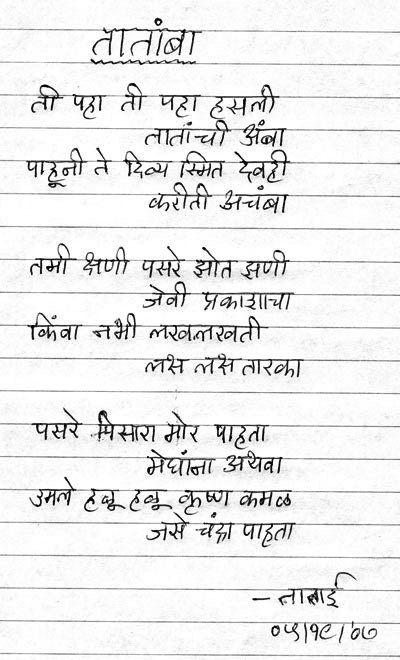 तातांबा
ती पहा ती पहा हसली
तातांची अंबा
पाहूनी ते दिव्य स्मित देवही
करीती अचंबा
तमी क्षणी पसरे झोत झणी
जेवी प्रकाशाचा
किंवा नभी लखलखती
लक्ष लक्ष तारका
पसरे पिसारा मोर पाहता
मेघांना अथवा
उमले हळू हळू कृष्ण कमळ
जसे चंद्रा पाहता
०५/१९/०७